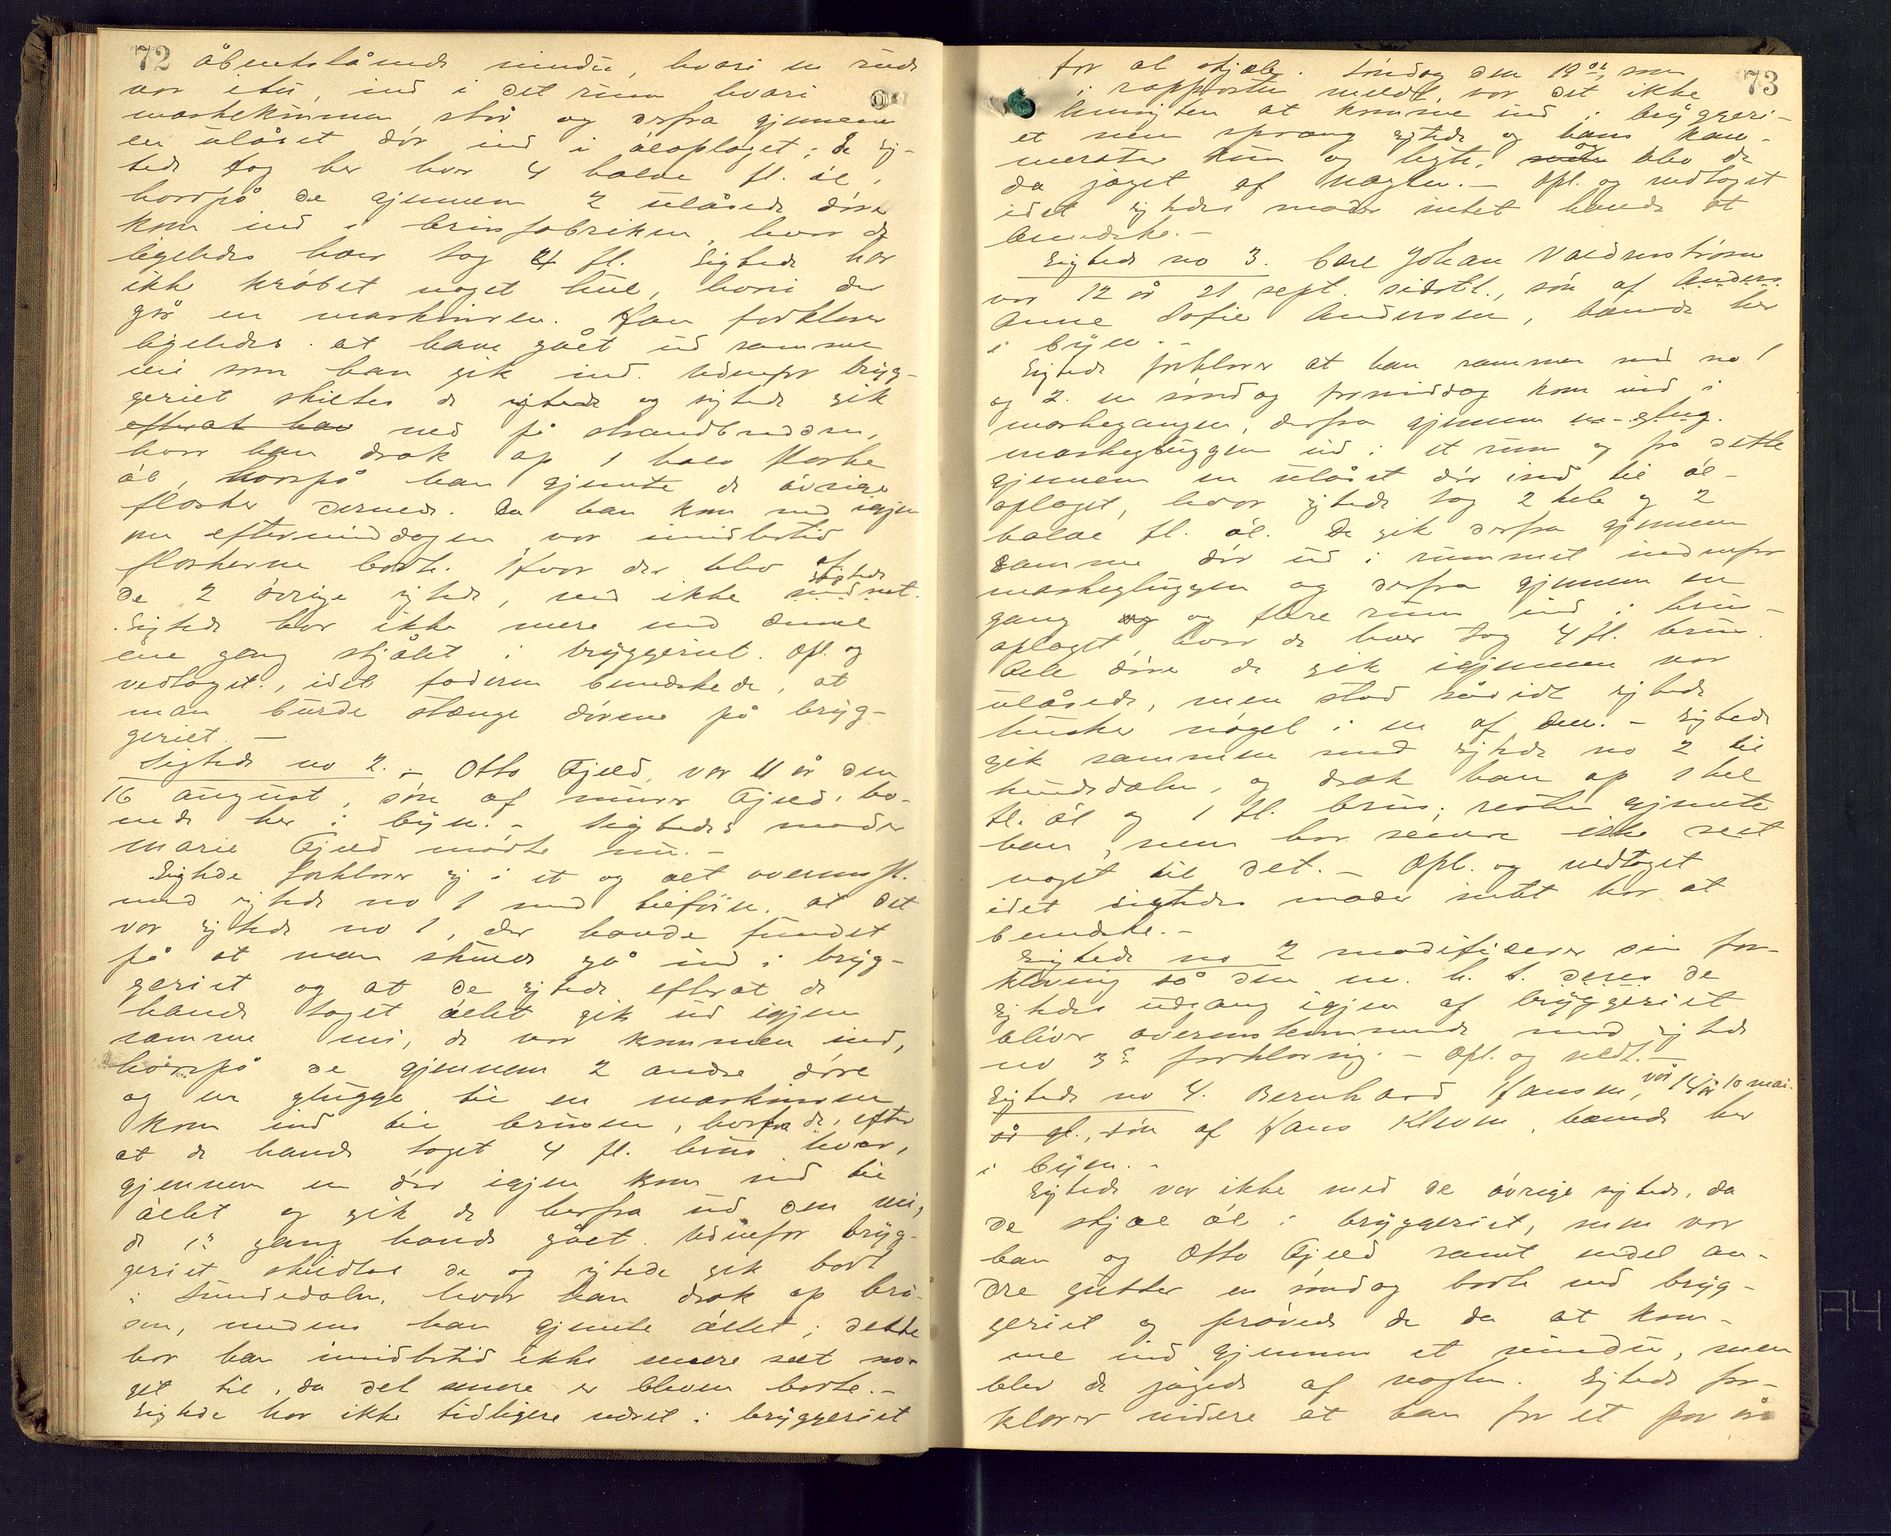 72 åbentstående vindu, hvori en rude
var itu, ind i det rum hvori
maskekummen står og derfra gjennem
en ulåset dør ind i øloplaget; de sig-
tede tog her hver 4 halve fl. øl,
hvorpå de gjennem 2 ulåsede døre
kom ind i brusfabriken, hvor de
ligeledes hver tog 4 fl. Sigtede har
ikke krøbet noget hul, hvori der
går en maskinrem. Han forklarer
ligeledes at have gået ud samme
vei som han gik ind. Udenfor bryg-
geriet skiltes de sigtede og sigtede gik
efterat han ned på strandbredden,
hvor han drak op 1 halv flaske
øl, hvorpå han gjemte de øvrige
flasker dernede. Da han kom ned igjen
om eftermiddagen, var imidlertid
flaskerne borte. Hvor der blev af
de 2 øvrige sigtede, ved ikke sigtede
Sigtede har ikke mere end denne
ene gang stjålet i bryggeriet. Opl. og
vedtaget, idet faderen bemærkede, at
man burde stænge dørene på bryg-
geriet. —
Sigtede no 2. - Otto Gjeld, var 11 år den
16 august, søn af murer Gjeld, bo-
ende her i byen. - Sigtedes moder
Marie Gjeld mødte nu. -
Sigtede forklarer sig i et og alt overensst.
med sigtede no 1 med tilføien, at det
var sigtede no 1, der havde fundet
på at man skulde gå ind i bryg-
geriet og at de sigtede efterat de
havde taget øllet gik ud igjen
samme vei, de var kommen ind,
hvorpå de gjennem 2 andre døre
og en glugge til en maskinrem
kom ind til brusen, hvorfra de, efter
at de havde taget 4 fl. brus hver,
gjennem en dør igjen kom ind til
øllet og gik de herfra ud den vei,
de 1ste gang havde gået. Udenfor bryg-
geriet skiltes de og sigtede gik bort
i Lundedalen, hvor han drak op bru-
sen, medens han gjemte øllet; dette
har han imidlertid ikke senere seet no-
get til, da det senere er bleven borte. -
Sigtede har ikke tidligere været i bryggeriet
73
for at stjæle. Søndag den 19de, som
i rapporten meldt, var det ikke
hensigten at komme ind i bryggeri-
et men sprang sigtede og hans kam-
merater kun og legte, og blev de
da jaget af vagten. - Opl. og vedtaget
idet sigtedes moder intet havde at
bemærke. -
Sigtede no 3. Carl Johan Valdenstrøm
var 12 år 21 sept. sidstl., søn af Anders.
Anne Sofie Andersen, boende her
i byen. -
Sigtede forklarer at han sammen med no 1
og 2 en søndag formiddag kom ind i
maskegangen, derfra gjennem en glug.
maskegluggen ind i et rum og fra dette
gjennem en ulåset dør ind til øl-
oplaget, hvor sigtede tog 2 hele og 2
halve fl. øl. De gik derfra gjennem
samme dør ud i rummet indenfor
maskegluggen og derfra gjennem en
gang og flere rum ind i brus-
oplaget, hvor de hver tog 4 fl. brus.
Alle døre de gik igjennem var
ulåsede, men stod såvidt sigtede
husker nøgel i en af dem. - Sigtede
gik sammen med sigtede no 2 til
Lundedalen, og drak han op 1 hel
fl. øl og 1 fl. brus; resten gjemte
han, men har senere ikke seet
noget til det. - Opl. og vedtaget
idet sigtedes moder intet har at
bemærke. -
Sigtede no 2 modificerer sin for-
klaring så den m. h. t. deres de
sigtedes udgang igjen af bryggeriet
bliver overensstemmende med sigtede
no 3s forklaring. - Opl. og vedt. -
Sigtede no 4. Bernhard Hansen, var 14 år 10 mai
år gl., søn af Hans Klevom, boende her
i byen. -
Sigtede var ikke med de øvrige sigtede, da
de stjal øl i bryggeriet, men var
han og Otto Gjeld samt endel an-
dre gutter en søndag borte ved bryg-
geriet og prøvede de da at kom-
me ind gjennem et vindu, men
blev de jagede af vagten. Sigtede for-
klarer videre at han for et par år